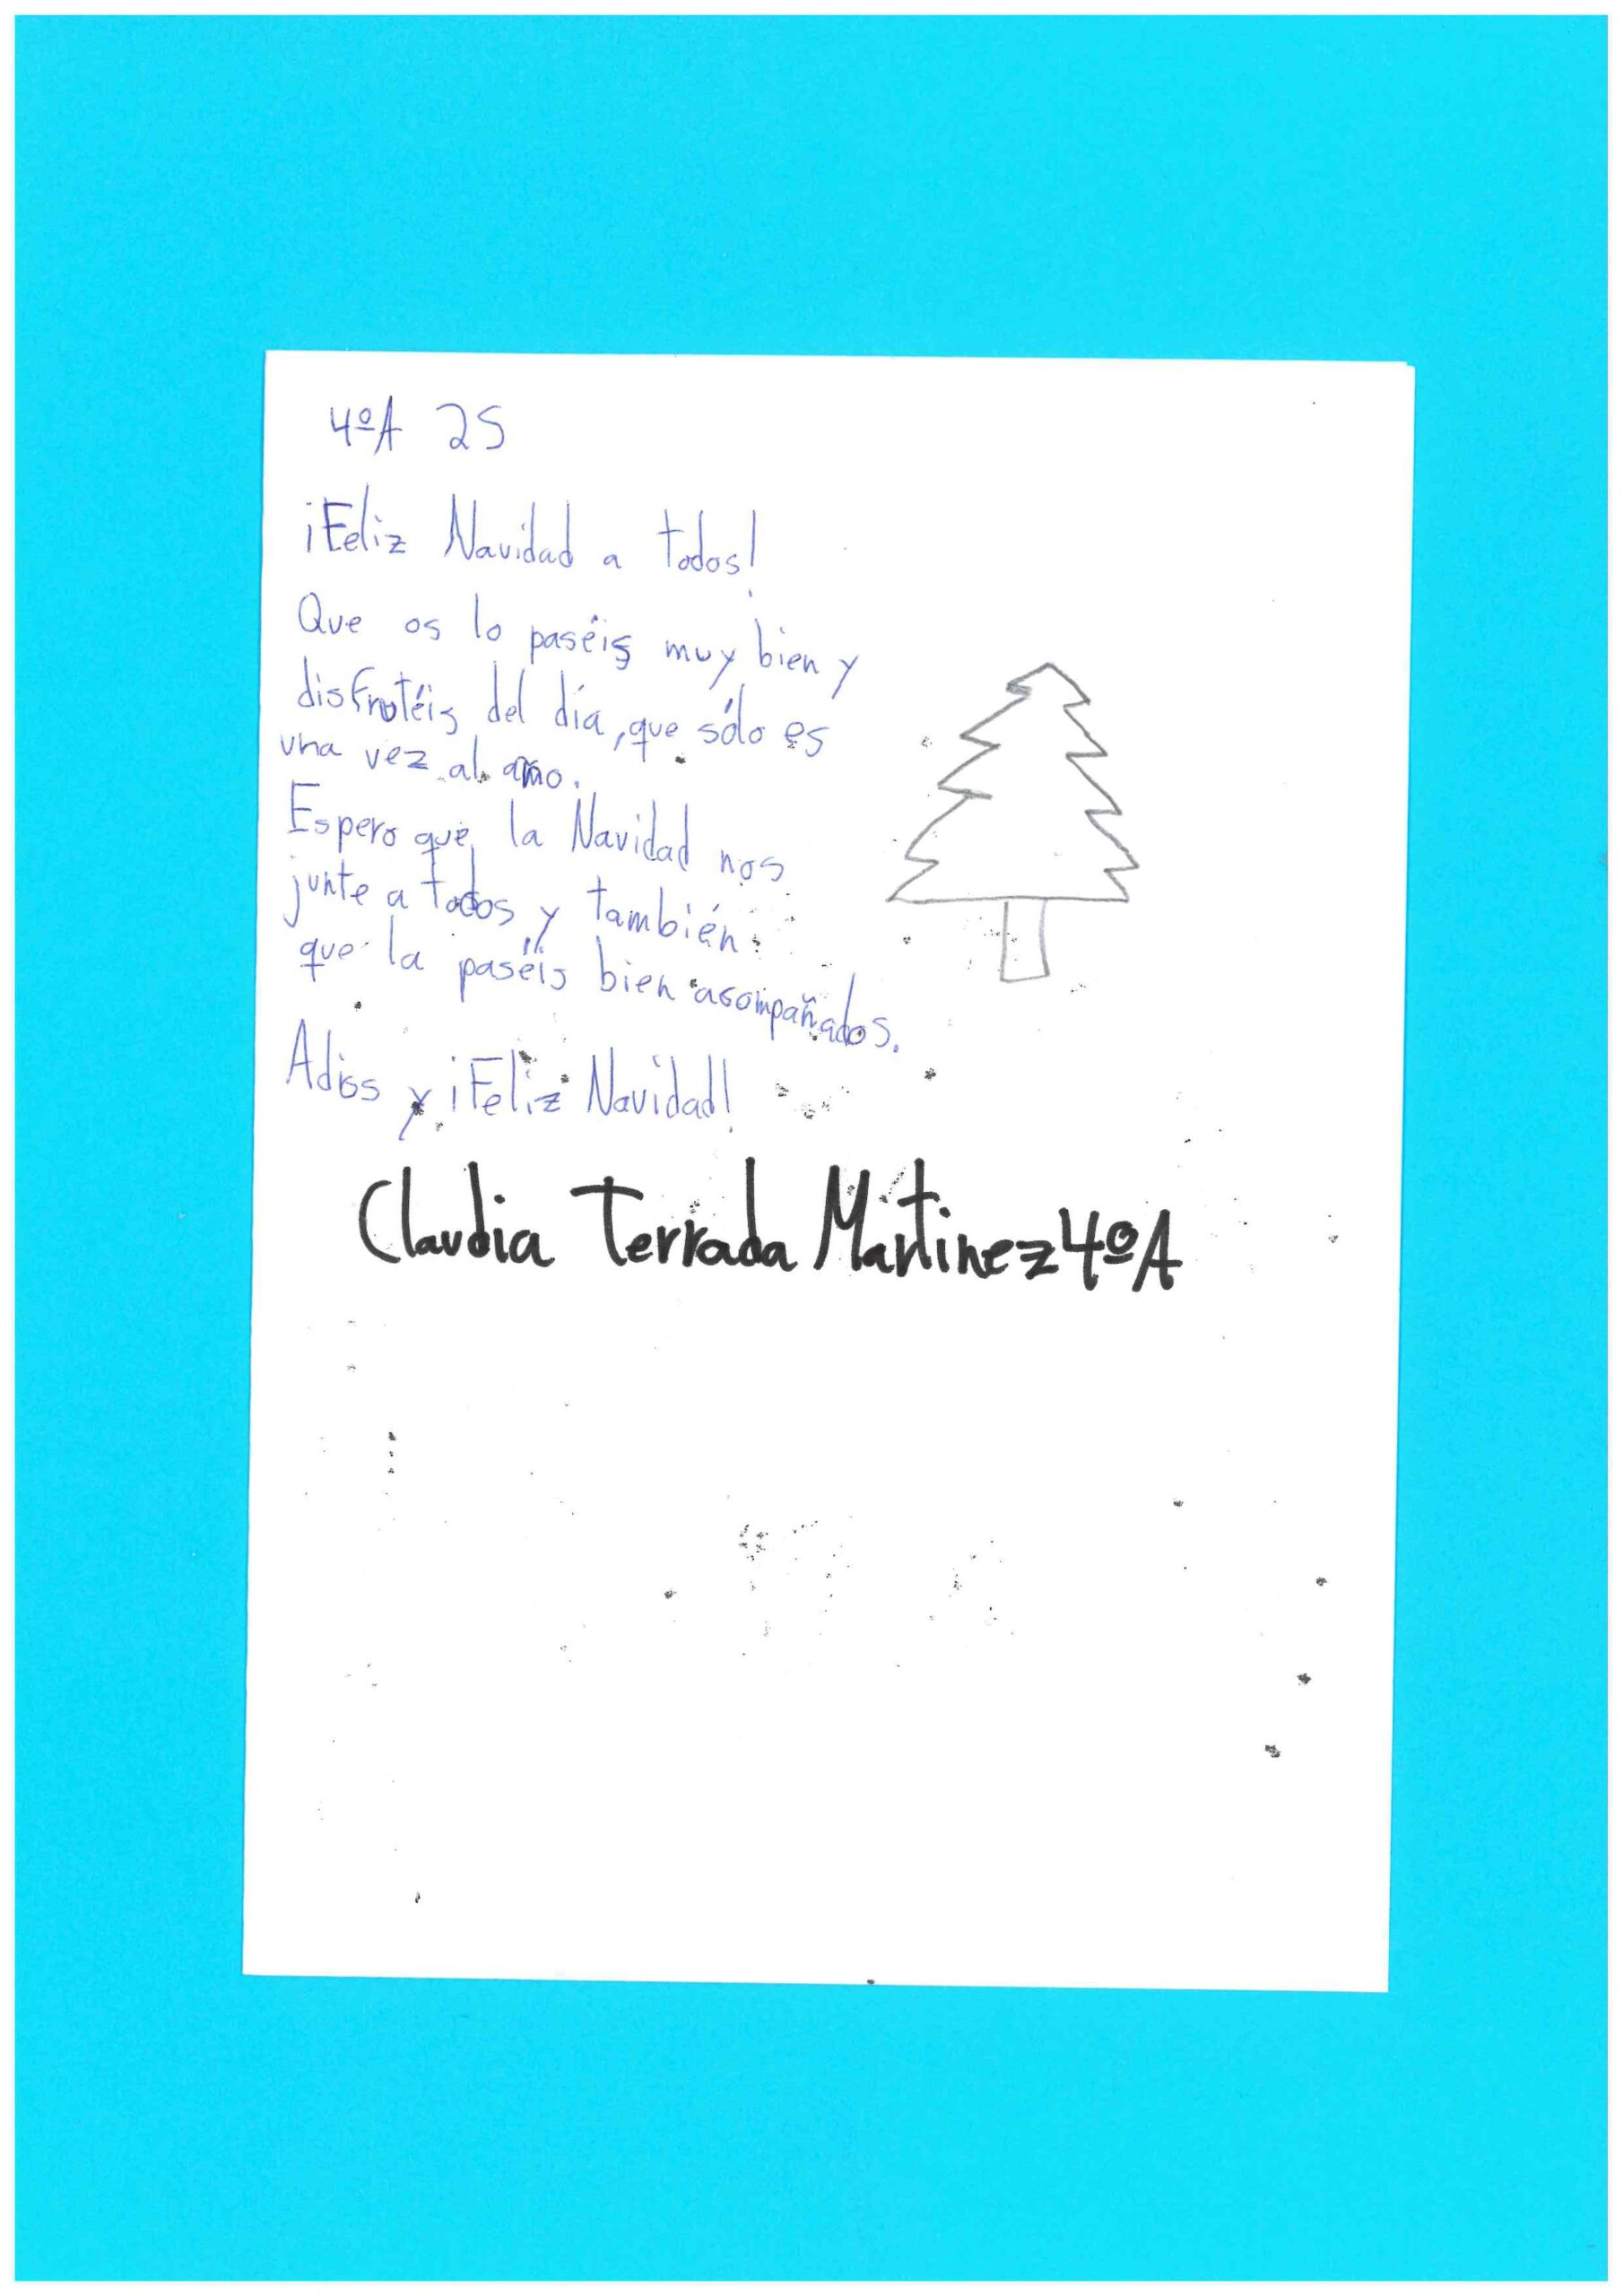 4ºA 25
¡Feliz Navidad a todos!
Que os lo paséis muy bien y
disfrutéis del día, que sólo es
una vez al ano.
Espero que la Navidad nos
junte a todos y también
que la paséis bien acompañados.
Adios y ¡Feliz Navidad!
Claudia Terrada Martinez 4ºA